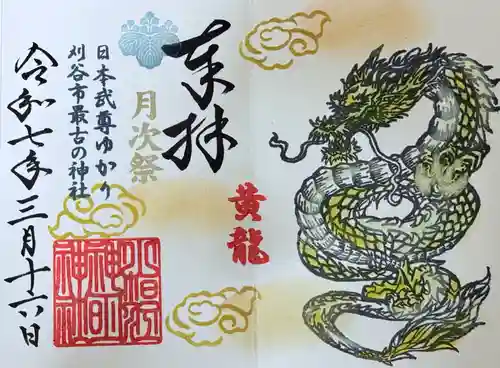 奉拝
月次祭
日本武尊ゆかり
刈谷市最古の神社
令和七年三月十六日
黄龍
小垣江
神明
神社